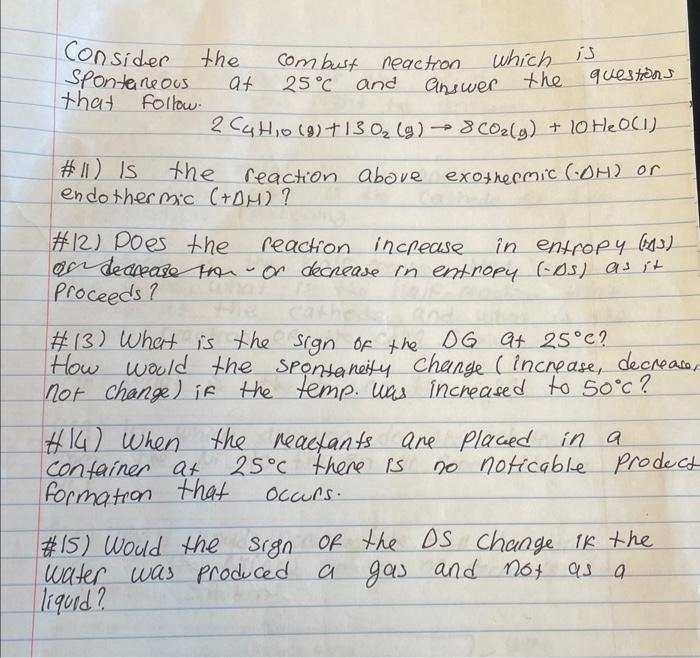 Consider the combust reaction which is
spontaneous at 25°C and answer the questions
that follow.
2 C4H10 (g) + 13 O2 (g) → 8 CO2(g) + 10 H2O(l)
#11) Is the reaction above exothermic (-ΔH) or
endothermic (+ΔH)?
#12) Does the reaction increase in entropy (+ΔS)
or decrease in entropy (-ΔS) as it
proceeds?
#13) What is the sign of the DG at 25°C?
How would the spontaneity change (increase, decrease,
not change) if the temp. was increased to 50°C?
#14) When the reactants are placed in a
container at 25°C there is no noticable product
formation that occurs.
#15) Would the sign of the DS change if the
water was produced a gas and not as a
liquid?